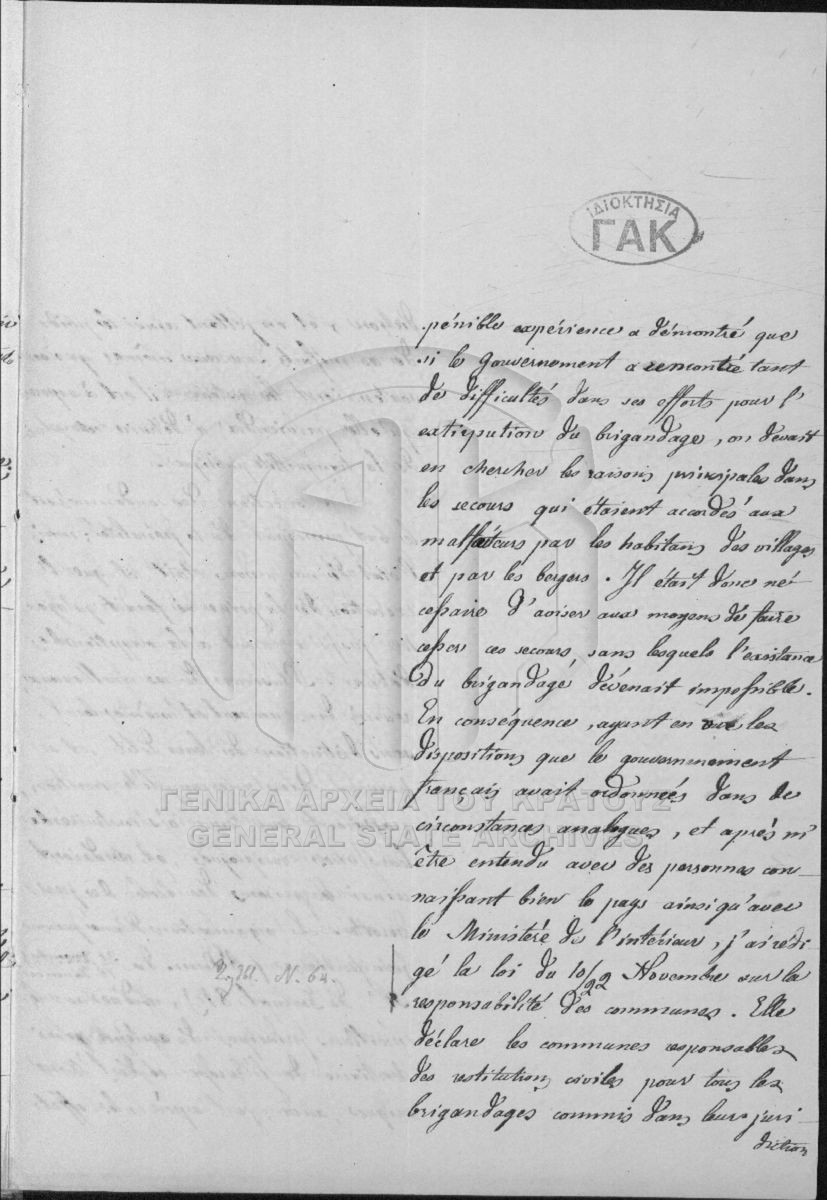 ΙΔΙΟΚΤΗΣΙΑ
ΓΑΚ
pénible expérience a démontré que
si le Gouvernement a rencontré tant
de difficultés dans ses efforts pour l'
extirpation du brigandage, on devait
en chercher les raisons principales dans
les secours qui étaient accordés aux
malfaiteurs par les habitans des villages
et par les bergers. Il était donc né-
cessaire d'aviser aux moyens de faire
cesser ces secours sans lesquels l'existance
du brigandagé dévenait impossible.
En conséquence, ayant en vue les
dispositions que le gouvernement
français avait ordonnées dans de
circonstances analogues, et après m'
être entendu avec des personnes con-
naissant bien le pays ainsi qu'avec
le Ministère de l'intérieur, j'ai rédi-
gé la loi du 10/22 Novembre sur la
responsabilité des communes. Elle
déclare les communes responsables
des restitutions civiles pour tous les
brigandages commis dans leur juri
diction
N. 64.
ΓΕΝΙΚΑ ΑΡΧΕΙΑ ΤΟΥ ΚΡΑΤΟΥΣ
GENERAL STATE ARCHIVES